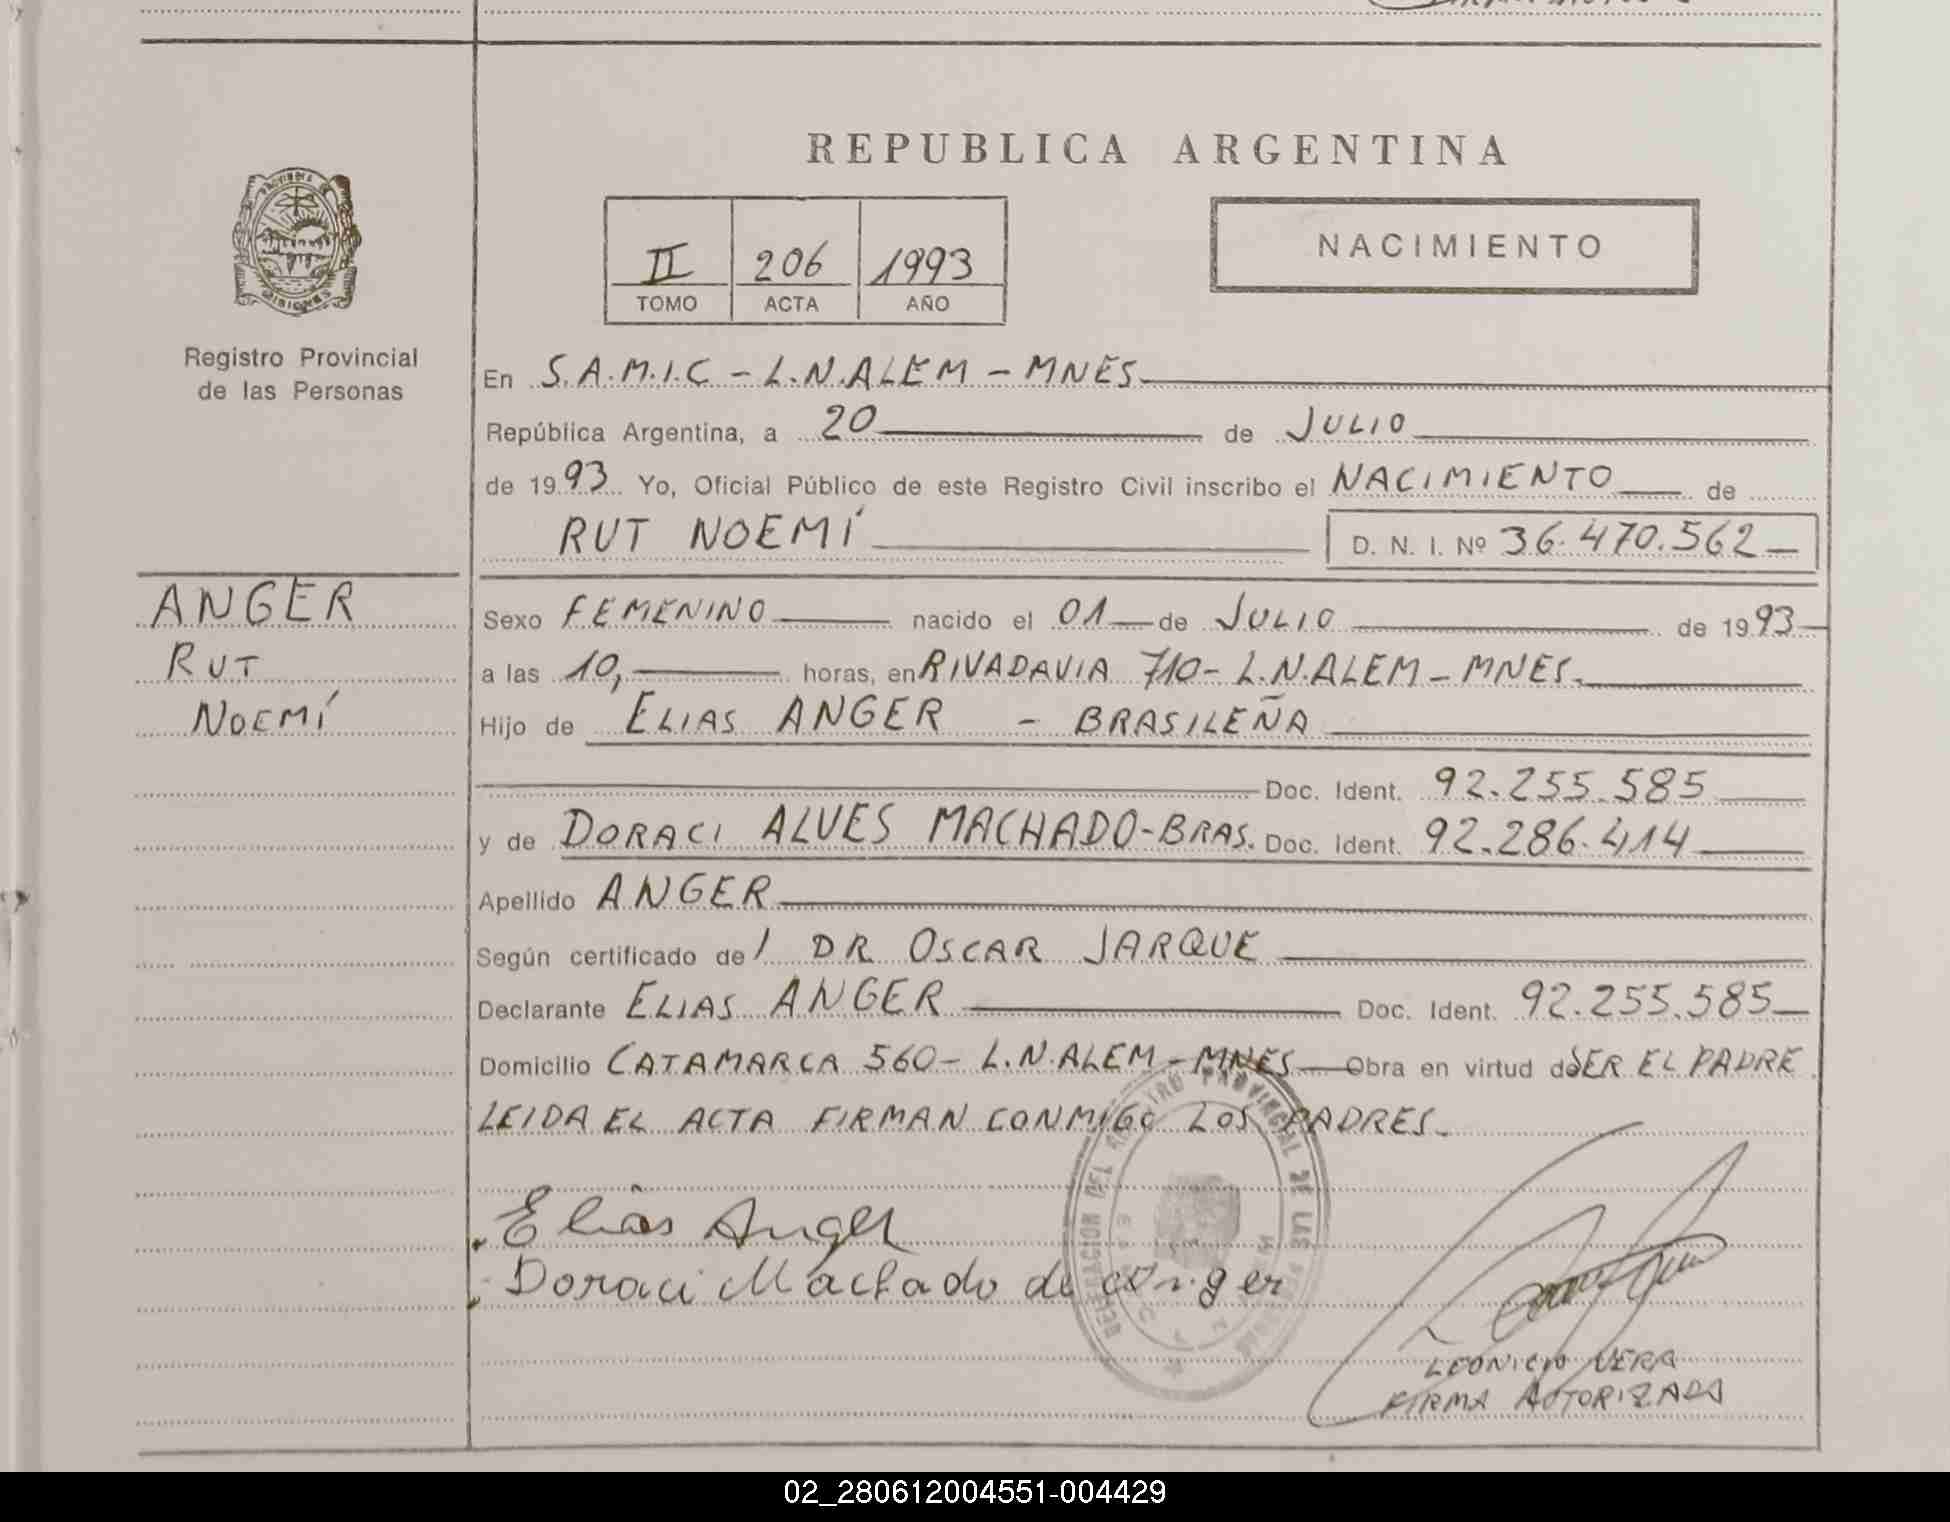 REPUBLICA ARGENTINA
II 206 1993
TOMO ACTA AÑO
NACIMIENTO
Registro Provincial
de las Personas
En S.A.M.I.C - L.N.ALEM - MNES
República Argentina, a 20 de JULIO
de 1993 Yo, Oficial Público de este Registro Civil inscribo el NACIMIENTO de
RUT NOEMÍ D. N. I. Nº 36.470.562
ANGER
RUT
NOEMÍ
Sexo FEMENINO nacido el 01 de JULIO de 1993
a las 10, horas, en RIVADAVIA 710 - L.N.ALEM - MNES.
Hijo de ELIAS ANGER - BRASILEÑA
Doc. Ident. 92.255.585
y de DORACI ALVES MACHADO-BRAS. Doc. Ident. 92.286.414
Apellido ANGER
Según certificado de/ DR OSCAR JARQUE
Declarante ELIAS ANGER Doc. Ident. 92.255.585
Domicilio CATAMARCA 560 - L.N.ALEM - MNES Obra en virtud de SER EL PADRE
LEIDA EL ACTA FIRMAN CONMIGO LOS PADRES.
Elias Anger
Doraci Machado de Anger
DELEGACION DEL REGISTRO PROVINCIAL DE LAS PERSONAS
LEONICIO VERA
FIRMA AUTORIZADA
02_280612004551-004429